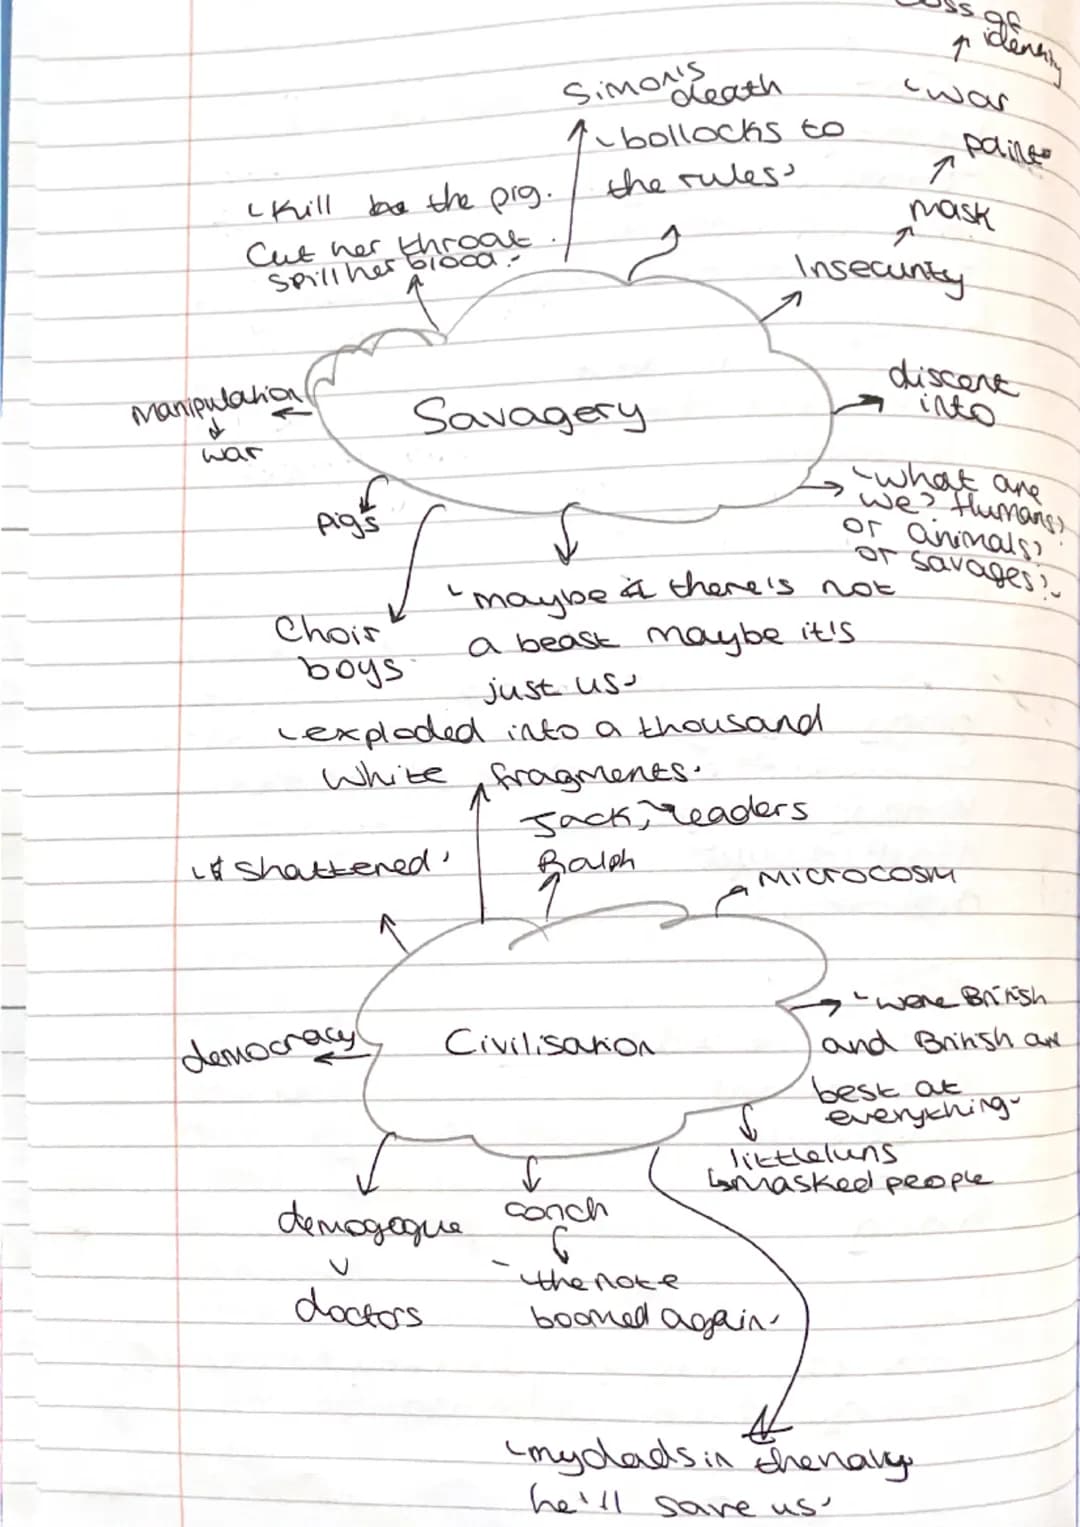 Loss of
identity
'war
paint'
mask
Insecurity
Simon's
death
'bollocks to
the rules'
'Kill the pig.
Cut her throat.
Spill her blood.'
Manipulation
war
Savagery
discent
into
pigs
'what are
we? Humans?
or animals?
or savages?'
Choir
boys
'maybe there's not
a beast maybe it's
just us'
'exploded into a thousand
white fragments.
Jack, leaders
Ralph
'shattened'
Microcosm
democracy
Civilisation
'were British
and British are
best at
everything'
littleluns
masked people
demogogue
v
doctors
conch
'the note
boomed again'
'my dads in the navy
he'll save us'